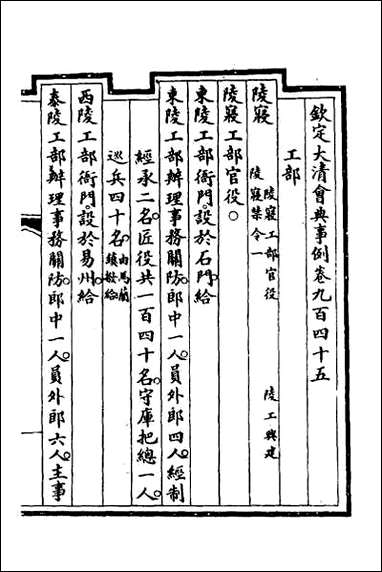 欽定大清會典事例卷九百四十五
工部
陵寢 陵寢工部官役 陵工興建
陵寢禁令一
陵寢工部官役○
東陵工部衙門。設於石門。給
東陵工部辦理事務關防。郎中一人。員外郎四人。經制
經承二名。匠役共一百四十名。守庫把總一人。
巡兵四十名。由馬蘭鎮撥給
西陵工部衙門。設於易州。給
泰陵工部辦理事務關防。郎中一人。員外郎六人。主事